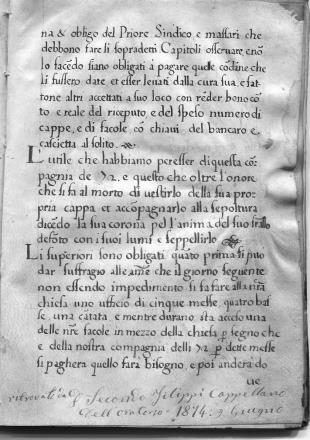 na & obligo del Priore Sindico, e massari che
debbono fare li sopradetti Capitoli osservare, e nõ
lo facẽdo siano obligati à pagare quelle cõdẽne che
li fussero date, et esser levati dalla cura sua, e fat-
tone altri accettati a suo loco con rẽder bono cõ-
to e reale del riceputo, e del speso numero di
cappe, e di facole cõ chiavi del bancaro e
cascietta al solito.
L'utile che habbiamo per esser di questa cõ-
pagnia de è questo che oltre l'onore
che si fa al morto di vestirlo della sua pro-
pria cappa et accõpagnarlo alla sepoltura
dicẽdo la sua corona pel l'anima del suo frãllo
defõto con i suoi lumi e seppellirlo
Li superiori sono obligati quãto prima si può
dar suffragio alle anĩe che il giorno seguente
non essendo impedimento si fa fare alla nrã
chiesa uno ufficio di cinque messe, quatro bas-
se, una cãtata, e mentre durano sta acceso una
delle nrẽ facole in mezzo della chiesa p segno che
è della nostra compagnia delli p dette messe
si pagherà quello farà bisogno, e poi anderà do
ve
ritrovato da Secondo Filippi Cappellano
dell'oratorio 1874. 9 Giugno